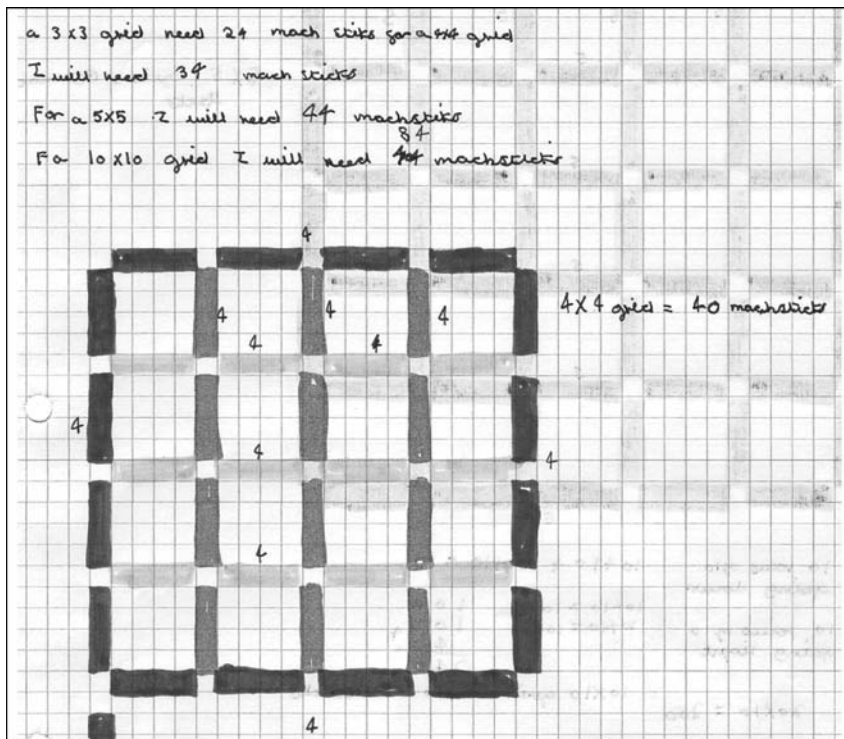 a 3x3 grid need 24 mach stiks for a 4x4 grid
I will need 34 mach sticks
For a 5x5 I will need 44 machstiks
84
Fa 10x10 grid I will need machsticks
4
4 4 4
4 4
4x4 grid = 40 machsticks
4 4 4
4
4